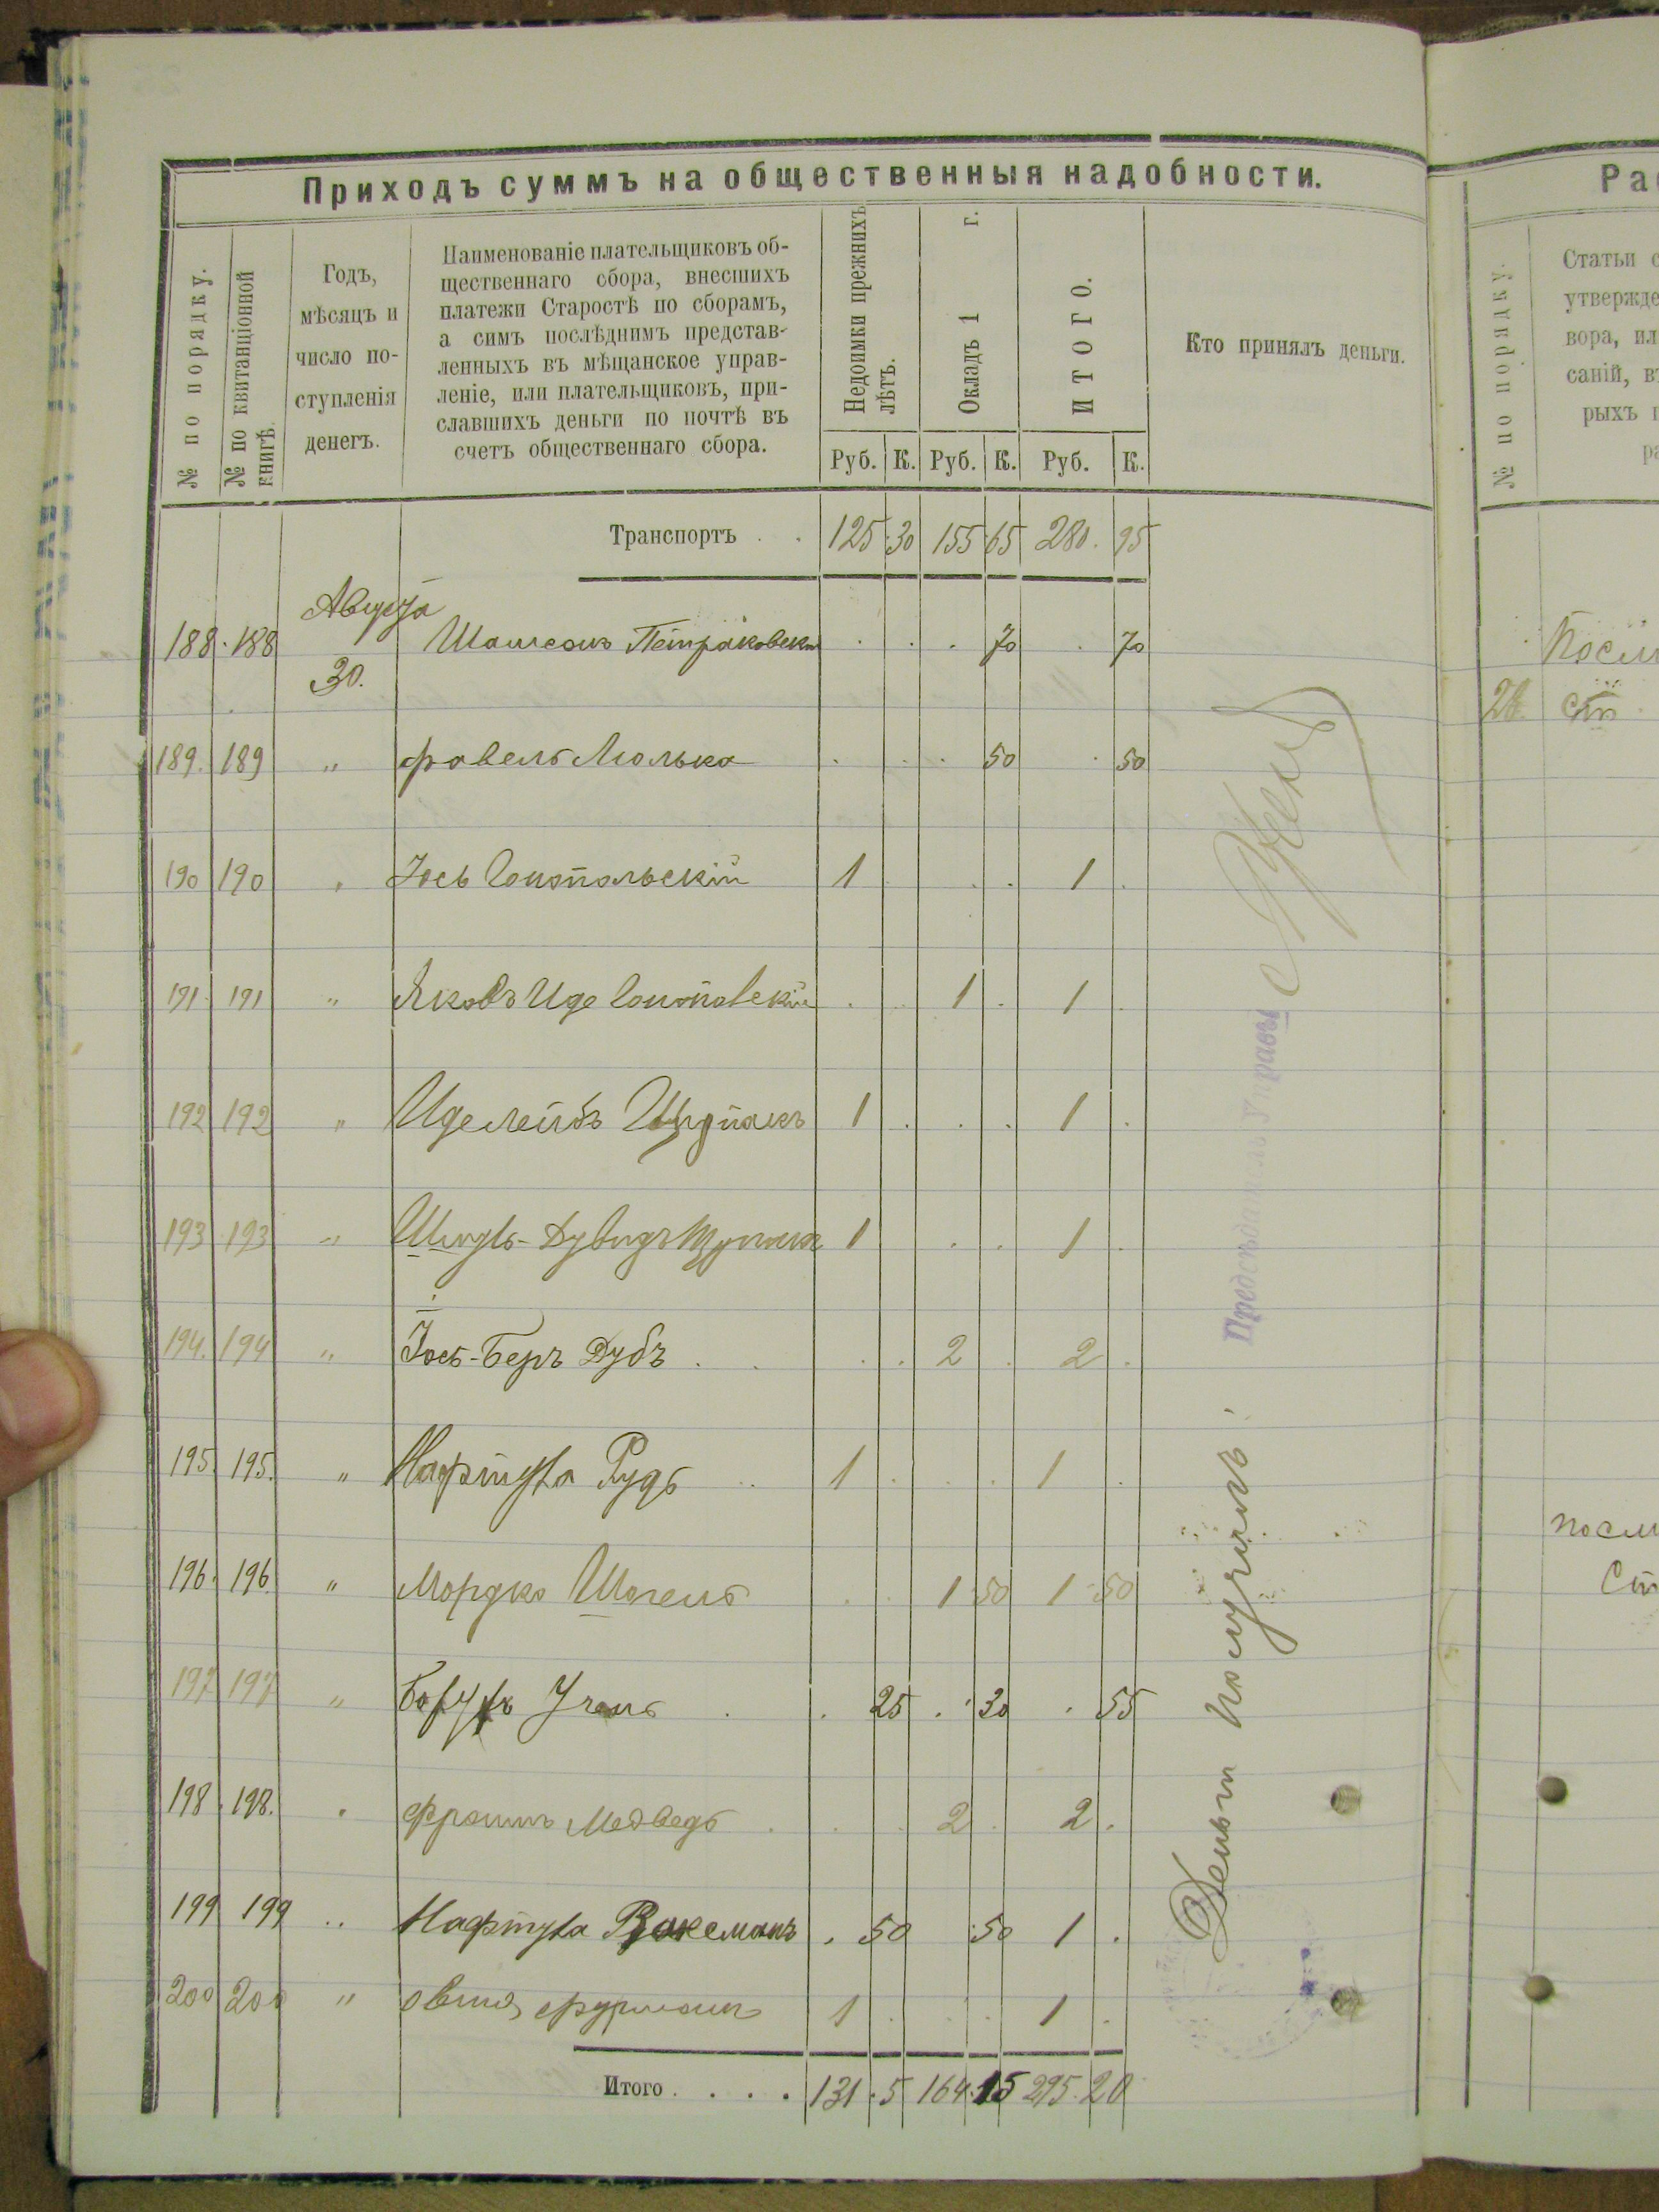 Приходъ суммъ на общественныя надобности.
№ по порядку.
№ по квитанціонной книгѣ.
Годъ,
мѣсяцъ и
число по-
ступленія
денегъ.
Наименованіе плательщиковъ об-
щественнаго сбора, внесшихъ
платежи Старостѣ по сборамъ,
а симъ послѣднимъ представ-
ленныхъ въ мѣщанское управ-
леніе, или плательщиковъ, при-
славшихъ деньги по почтѣ въ
счетъ общественнаго сбора.
Недоимки прежнихъ лѣтъ.
Окладъ 1 г.
ИТОГО.
Кто принялъ деньги.
Руб. К. Руб. К. Руб. К.
Транспортъ . . 125 30 155 65 280. 95
Августа
188. 188 30. Шамсонъ Петраковск 70 70
189. 189 " Фавель Люлька 50 50
190 190 " Іось 1 1
191 191 " Яковъ Иде 1 1
192 192 " 1 1
193 193 " Дувидъ 1 1
194. 194 " Іось-Беръ Дубъ 2 2
195 195. " Нафтула Рудь 1 1
196. 196. " Мордко 1 50 1 50
197 197 " Борухъ 25 30 55
198 198. " Фроимъ Медведь 2 2
199 199 " Нафтула 50 50 1
200 200 " Фурманъ 1 1
Итого . . . . 131 5 164 15 295. 20
Деньги получилъ
Предсѣдатель Управы
Ра
№ по порядку.
Статьи с
утвержде
вора, ил
саній, в
рыхъ
ра